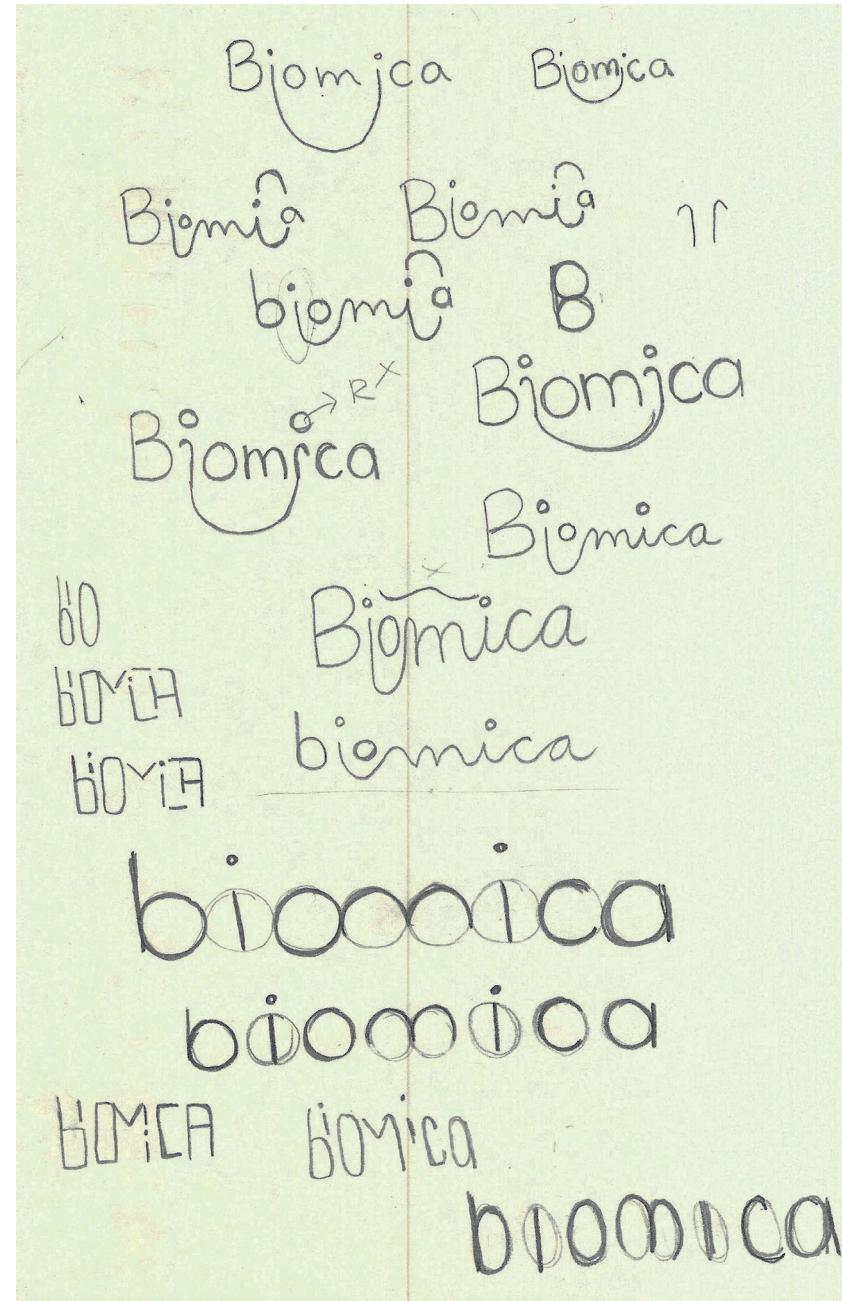 Biomica Biomica
Biomica Biomica
biomica B
Biomica
RX
Biomica
Biomica
bio
x
Biomica
BiOMiCA
biomica
BiOMiCA
biomica
biomica
biOMiCA biomica
biomica